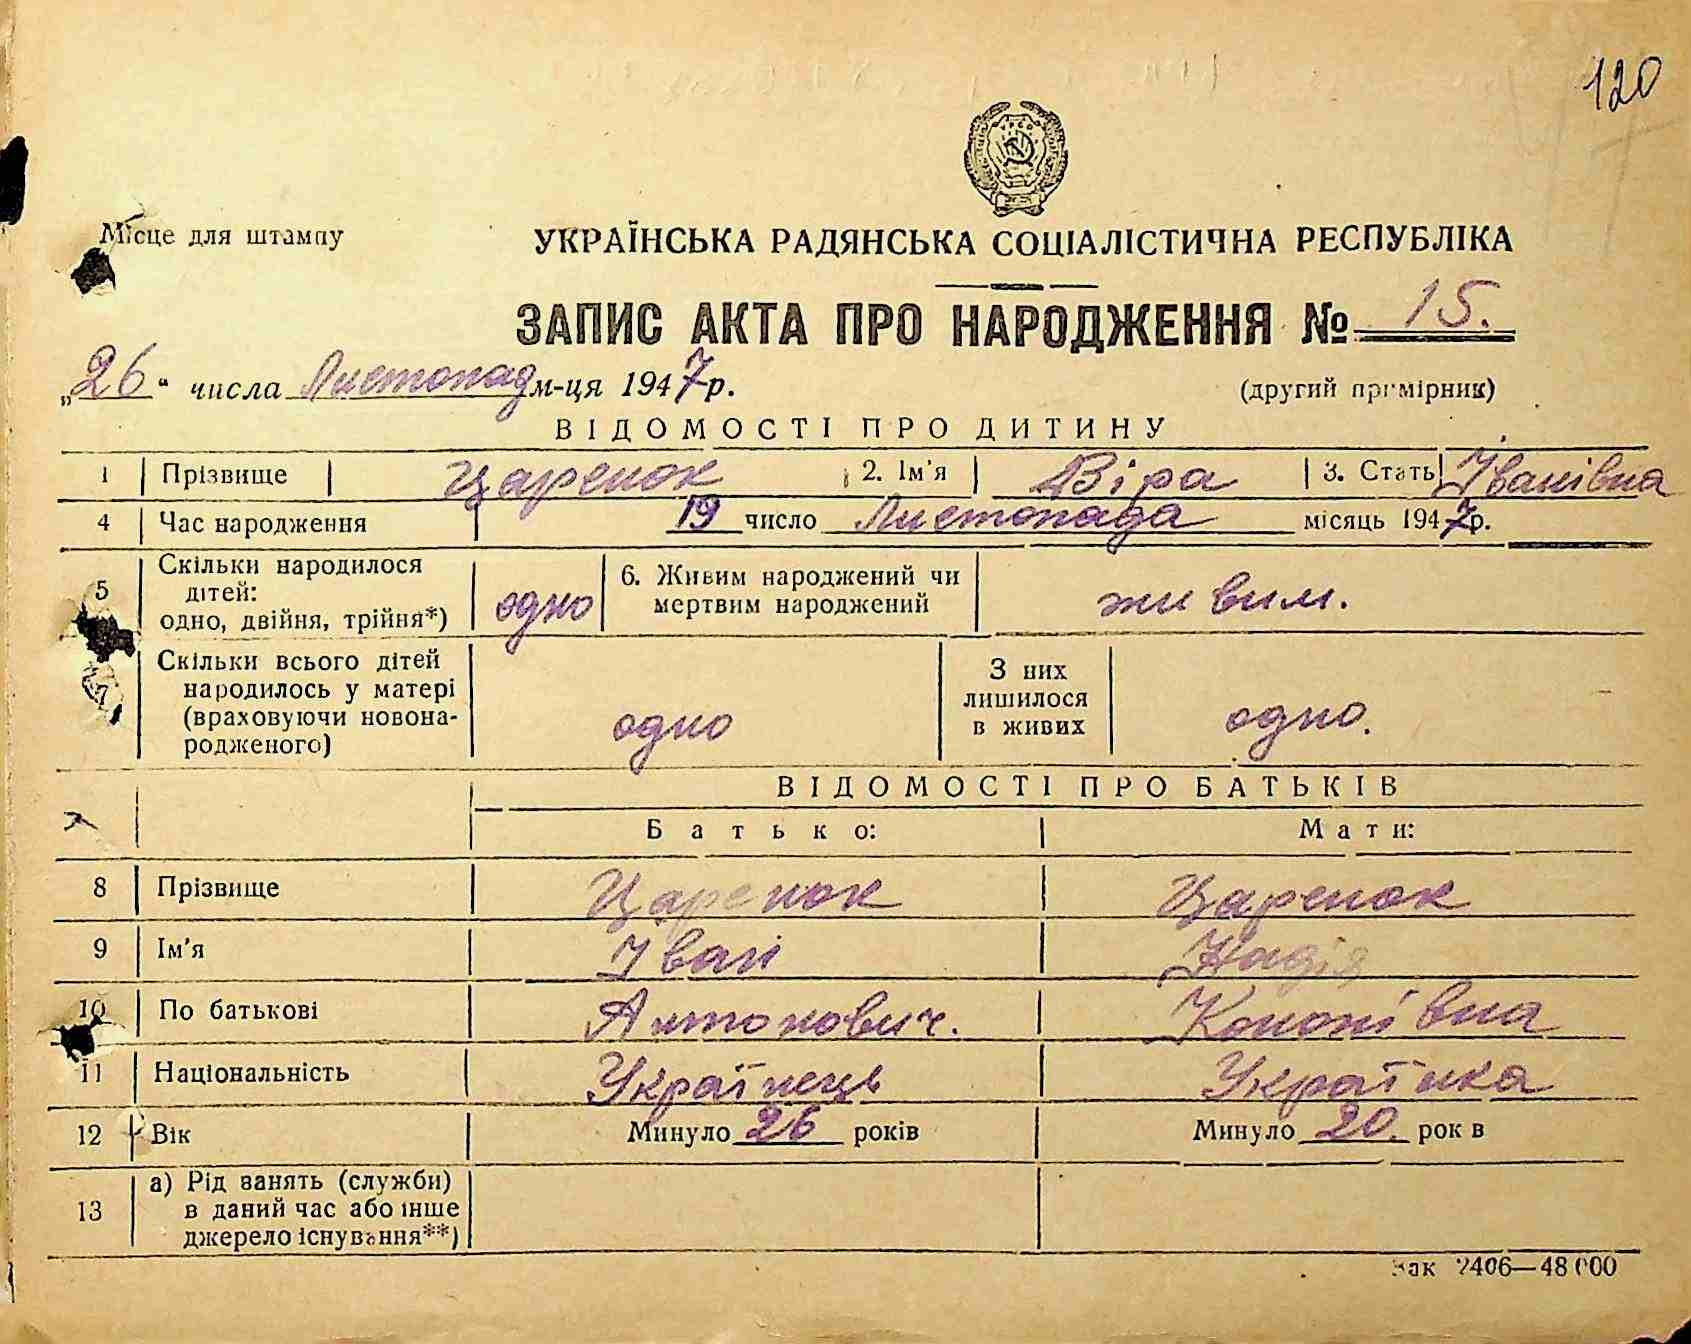 120
Місце для штампу
УКРАЇНСЬКА РАДЯНСЬКА СОЦІАЛІСТИЧНА РЕСПУБЛІКА
ЗАПИС АКТА ПРО НАРОДЖЕННЯ № 15.
„26“ числа Листопад м-ця 1947 р.
(другий примірник)
ВІДОМОСТІ ПРО ДИТИНУ
1 Прізвище Царенок 2. Ім'я Віра 3. Стать Іванівна
4 Час народження 19 число Листопада місяць 1947 р.
5 Скільки народилося дітей: одно, двійня, трійня*) одно 6. Живим народжений чи мертвим народжений живим.
7 Скільки всього дітей народилось у матері (враховуючи новона-родженого) одно З них лишилося в живих одно.
ВІДОМОСТІ ПРО БАТЬКІВ
Батько: Мати:
8 Прізвище Царенок Царенок
9 Ім'я Іван Надія
10 По батькові Антонович. Кононівна
11 Національність Українець Українка
12 Вік Минуло 26 років Минуло 20. рок в
13 а) Рід занять (служби) в даний час або інше джерело існування**)
Зак 2406—48 000